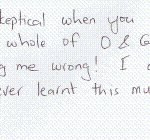 keptical when you
whole of O & G
g me wrong! I
ever learnt this mu